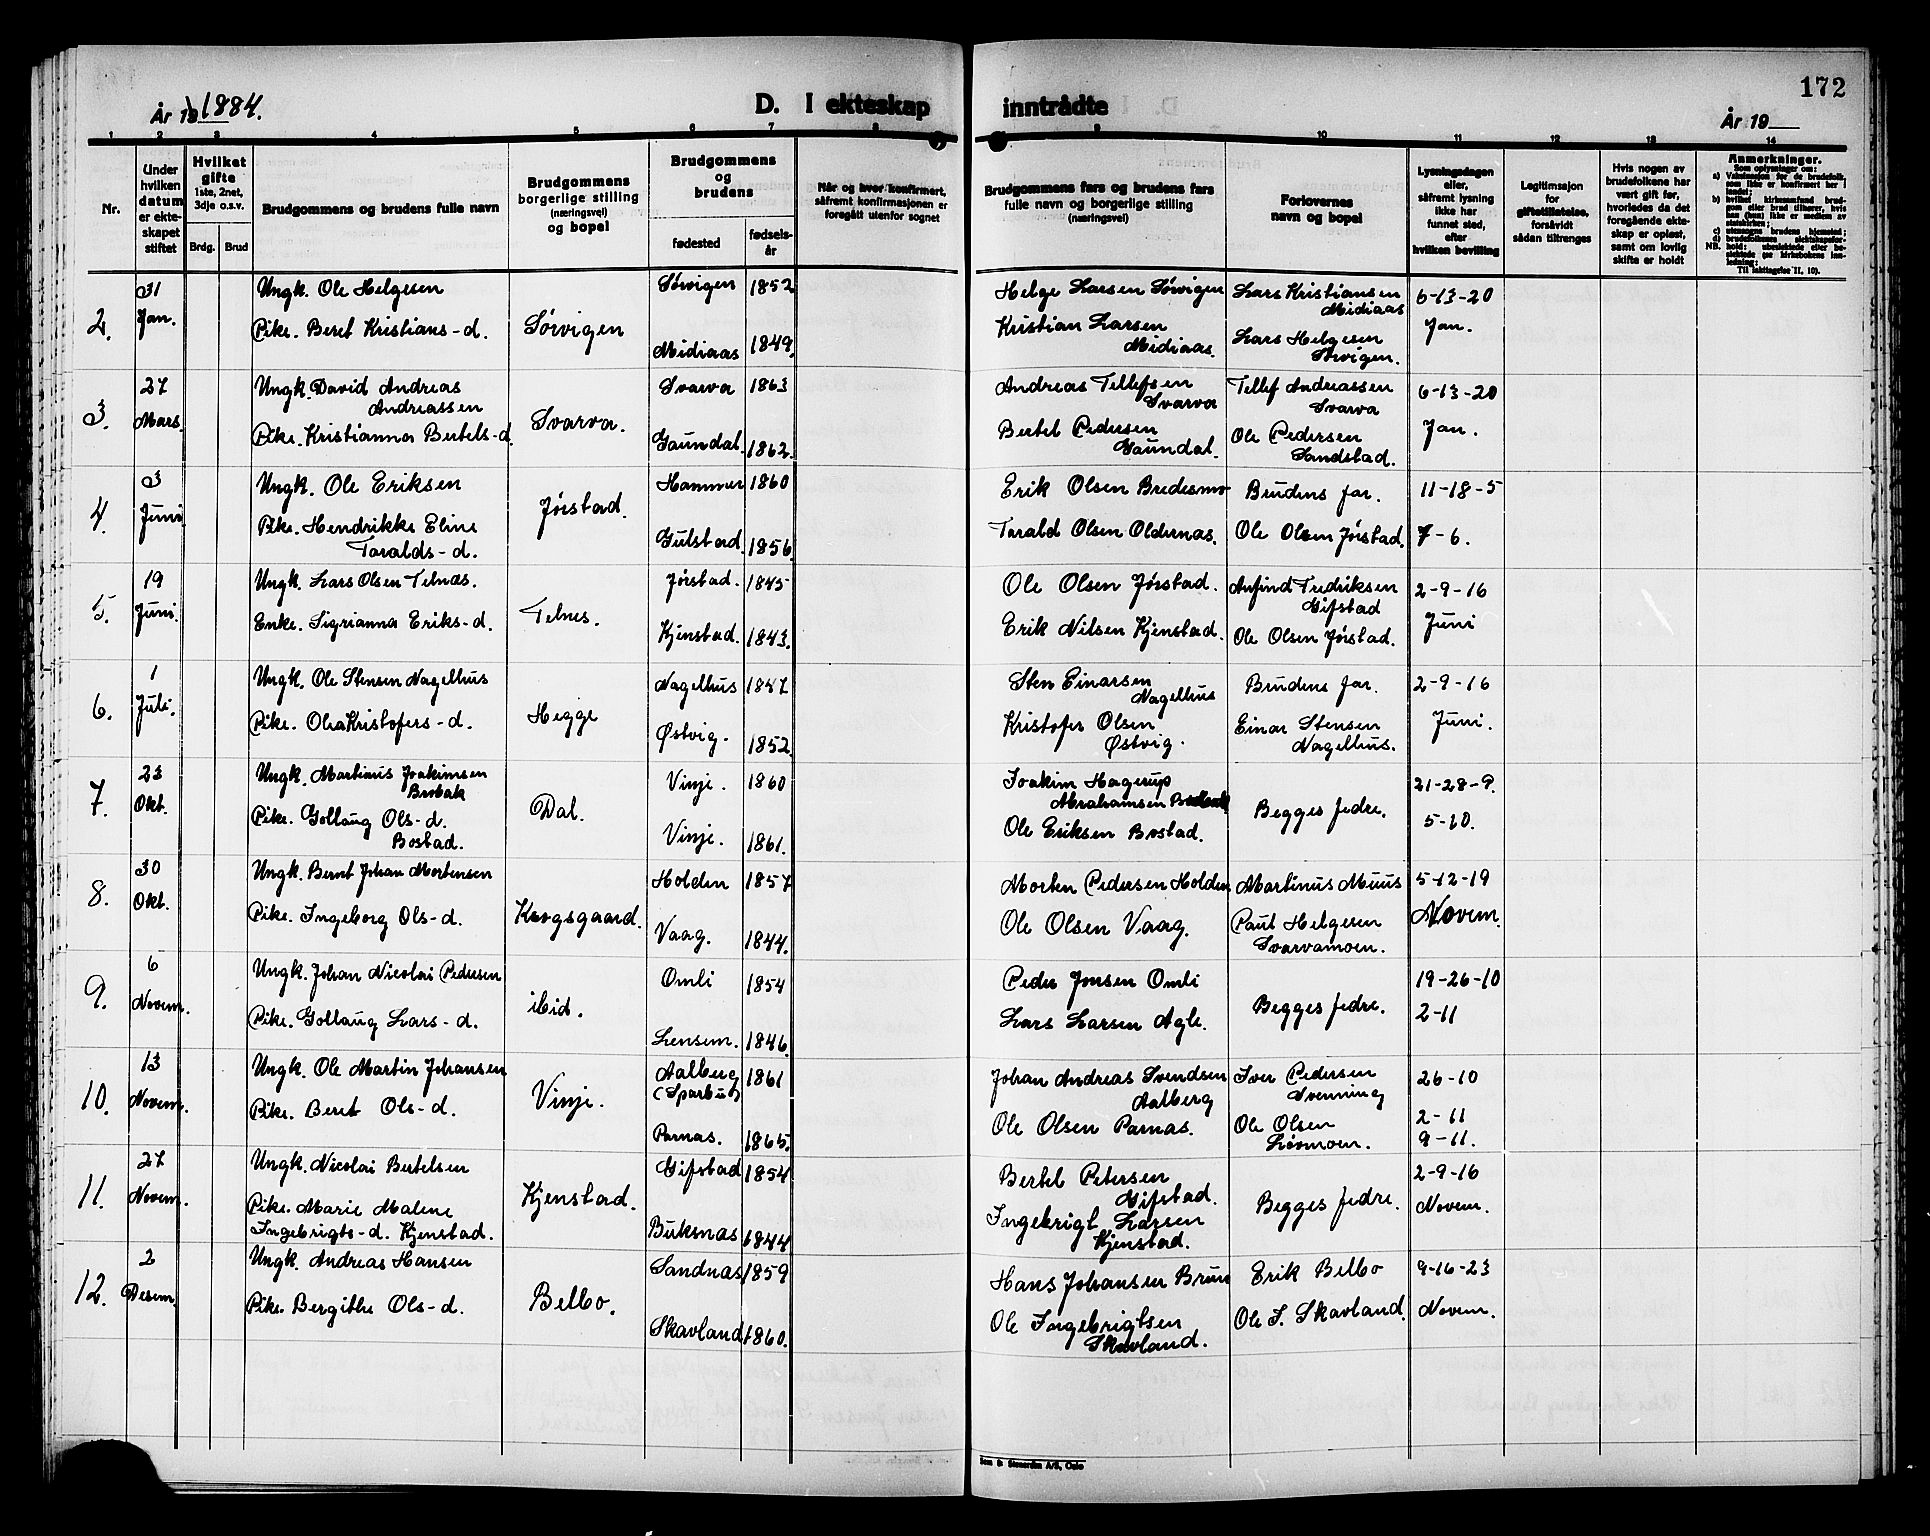 172
År 1884.
D. I ekteskap inntrådte
År 19
1 2 3 4 5 6 7 8 9 10 11 12 13 14
Nr.
Under hvilken datum er ekteskapet stiftet
Hvilket gifte 1ste, 2net, 3dje o.s.v.
Brdg. Brud
Brudgommens og brudens fulle navn
Brudgommens borgerlige stilling (næringsvei) og bopel
Brudgommens og brudens
fødested
fødselsår
Når og hvor konfirmert, såfremt konfirmasjonen er foregått utenfor sognet
Brudgommens fars og brudens fars fulle navn og borgerlige stilling (næringsvei)
Forlovernes navn og bopel
Lysningsdagen eller, såfremt lysning ikke har funnet sted, efter hvilken bevilling
Legitimasjon for giftetillatelse, forsåvidt sådan tiltrenges
Hvis nogen av brudefolkene har vært gift før, hvorledes da det foregående ekteskap er opløst, samt om lovlig skifte er holdt
Anmerkninger.
Som oplysninger om:
2. 31 Jan. Ungk. Ole Helgesen Sørvigen 1852 Helge Larsen Sørvigen Lars Kristiansen Midiaas 6-13-20
Pike. Beret Kristians-d. Sørvigen Midiaas 1849. Kristian Larsen Midiaas. Lars Helgesen Sørvigen. Jan.
3. 27 Mars. Ungk. David Andreas Andreassen Svarva 1863 Andreas Tellefsen Svarva Tellef Andreassen Svarva 6-13-20
Pike. Kristianna Bertels-d. Svarva. Gaundal. 1862. Bertel Pedersen Gaundal. Ole Pedersen Sandstad. Jan.
4. 3 Juni Ungk. Ole Eriksen Hammer 1860 Erik Olsen Bredesmo Brudens far. 11-18-5
Pike. Hendrikke Eline Taralds-d. Jørstad. Gulstad. 1856. Tarald Olsen Oldernas. Ole Olsen Jørstad. 7-6.
5. 19 Juni. Ungk. Lars Olsen Telnæs. Jørstad. 1845 Ole Olsen Jørstad. Anfind Fredriksen Gifstad 2-9-16
Enke. Sigrianna Eriks-d. Telnes. Kjenstad. 1843. Erik Nilsen Kjenstad. Ole Olsen Jørstad. Juni
6. 1 Juli. Ungk. Ole Stensen Nagelhus Nagelhus 1847 Sten Einarsen Nagelhus Brudens far. 2-9-16
Pike. Olea Kristofers-d. Hegge Østvig. 1852. Kristofer Olsen Østvig. Einar Stensen Nagelhus. Juni.
7. 23 Okt. Ungk. Martinus Joakimsen Brobak Vinje. 1860 Joakim Hagerup Abrahamsen Begges fedre. 21-28-9.
Pike. Gollaug Ols-d. Bostad. Dal. Vinje. 1861. Ole Eriksen Bostad. 5-10.
8. 30 Okt. Ungk. Bernt Johan Mortensen Holden 1857 Morten Pedersen Holden Martinus Muus 5-12-19
Pike. Ingeborg Ols-d. Krogsgaard. Vaag. 1844. Ole Olsen Vaag. Paul Helgesen Svarvamoen. Novem.
9. 6 Novem. Ungk. Johan Nicolai Pedersen Omli 1854 Peder Jonsen Omli Begges fedre. 19-26-10
Pike. Gollaug Lars-d. ibid. Lensem. 1846. Lars Larsen Agle. 2-11
10. 13 Novem. Ungk. Ole Martin Johansen Aalberg (Sparbu) 1861 Johan Andreas Svendsen Aalberg Iver Pedersen Svenning 26-10
Pike. Beret Ols-d. Vinje. Parnas. 1865. Ole Olsen Parnas. Ole Olsen Løvmoen. 2-11 9-11.
11. 27 Novem. Ungk. Nicolai Bertelsen Gifstad 1854 Bertel Petersen Gifstad. Begges fedre. 2-9-16
Pike. Marie Malene Ingebrigts-d. Kjenstad. Kjenstad. Buksnas 1844 Ingebrigt Larsen Kjenstad. Novem.
12. 2 Desem. Ungk. Andreas Hansen Sandnas 1859 Hans Johansen Brun Erik Belbo 9-16-23
Pike. Bergithe Ols-d. Belbo. Skavland 1860. Ole Ingebrigtsen Skavland. Ole I. Skavland. Novem.